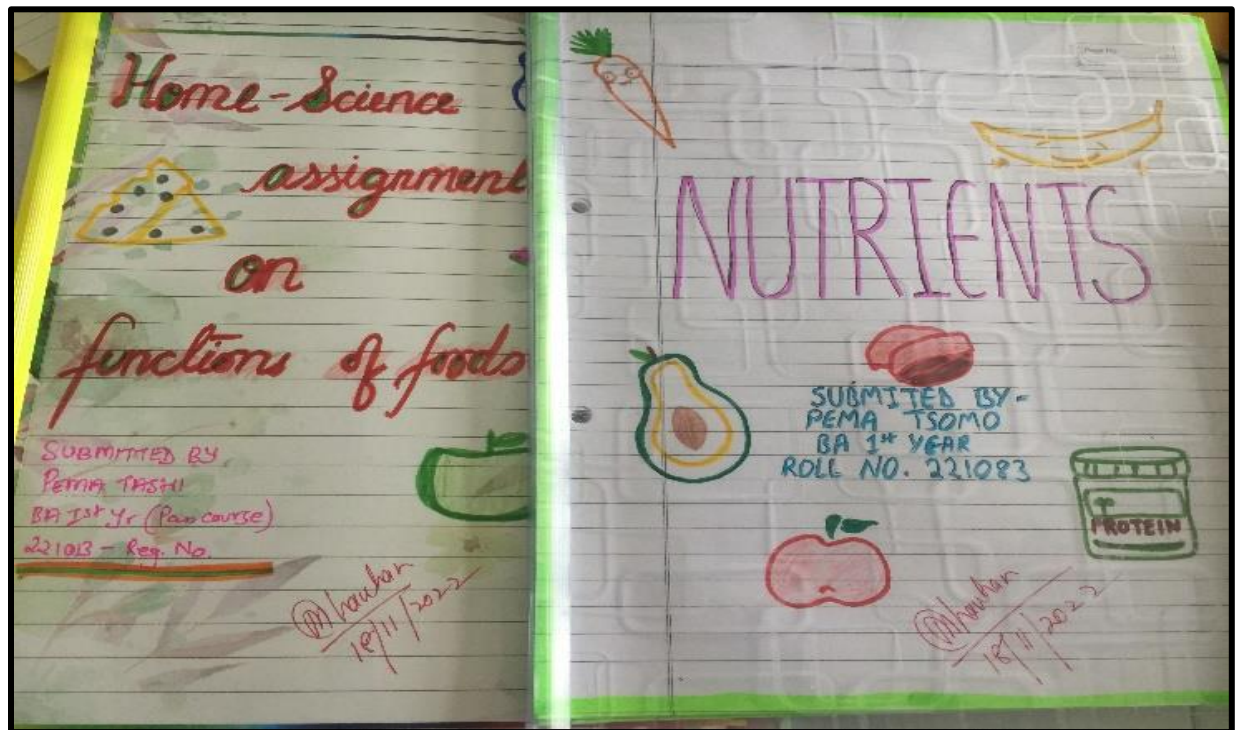 Home-Science
assignment
on
functions of foods
SUBMITTED BY
PEMA TASHI
BA Ist Yr (Pass course)
221013 - Reg. No.
18/11/2022
NUTRIENTS
SUBMITED BY-
PEMA TSOMO
BA 1st YEAR
ROLL NO. 221083
PROTEIN
18/11/2022